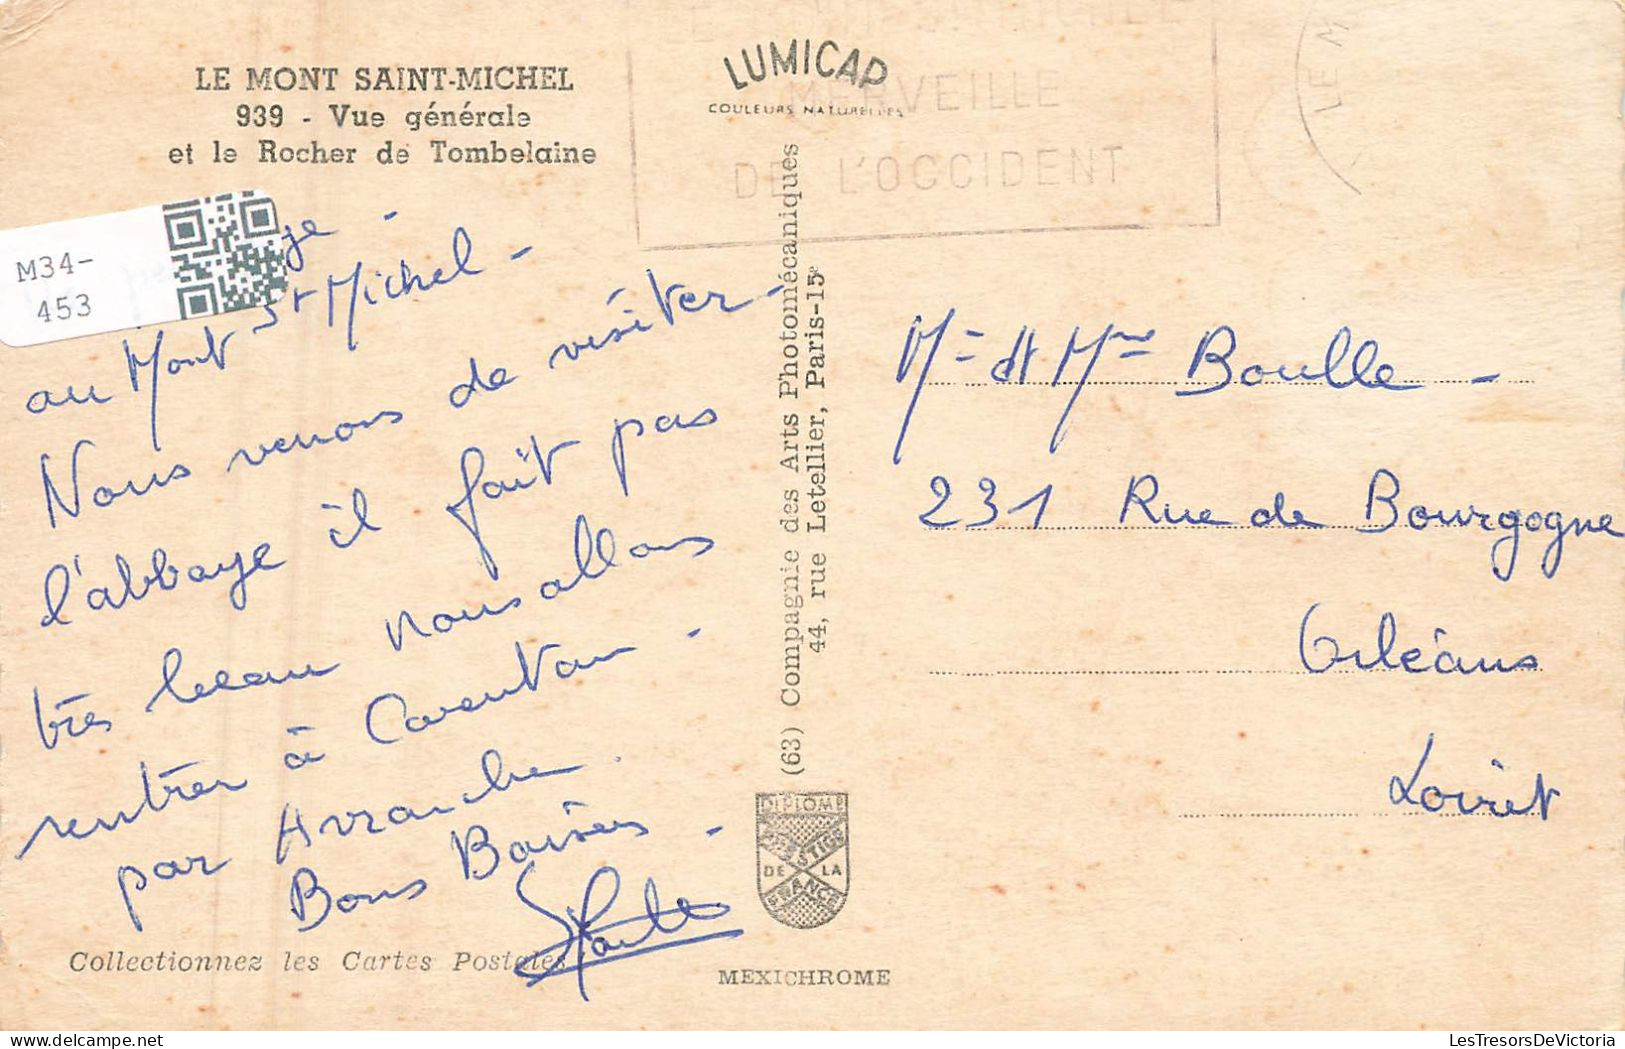 LE MONT SAINT-MICHEL
939 - Vue générale
et le Rocher de Tombelaine
LUMICAP
COULEURS NATURELLES
MERVEILLE
DE L'OCCIDENT
LE M
M34-
453
au Mont St Michel -
Nous venons de visiter -
l'abbaye il fait pas
très beau nous allons
rentrer à Carentan -
par Avranche.
Bons Baisers -
Collectionnez les Cartes Postales
(63) Compagnie des Arts Photomécaniques
44, rue Letellier, Paris-15e
DIPLOME
PRESTIGE
DE LA
FRANCE
MEXICHROME
Mr et Mme Boulle -
231 Rue de Bourgogne
Orléans
Loiret
LesTresorsDeVictoria